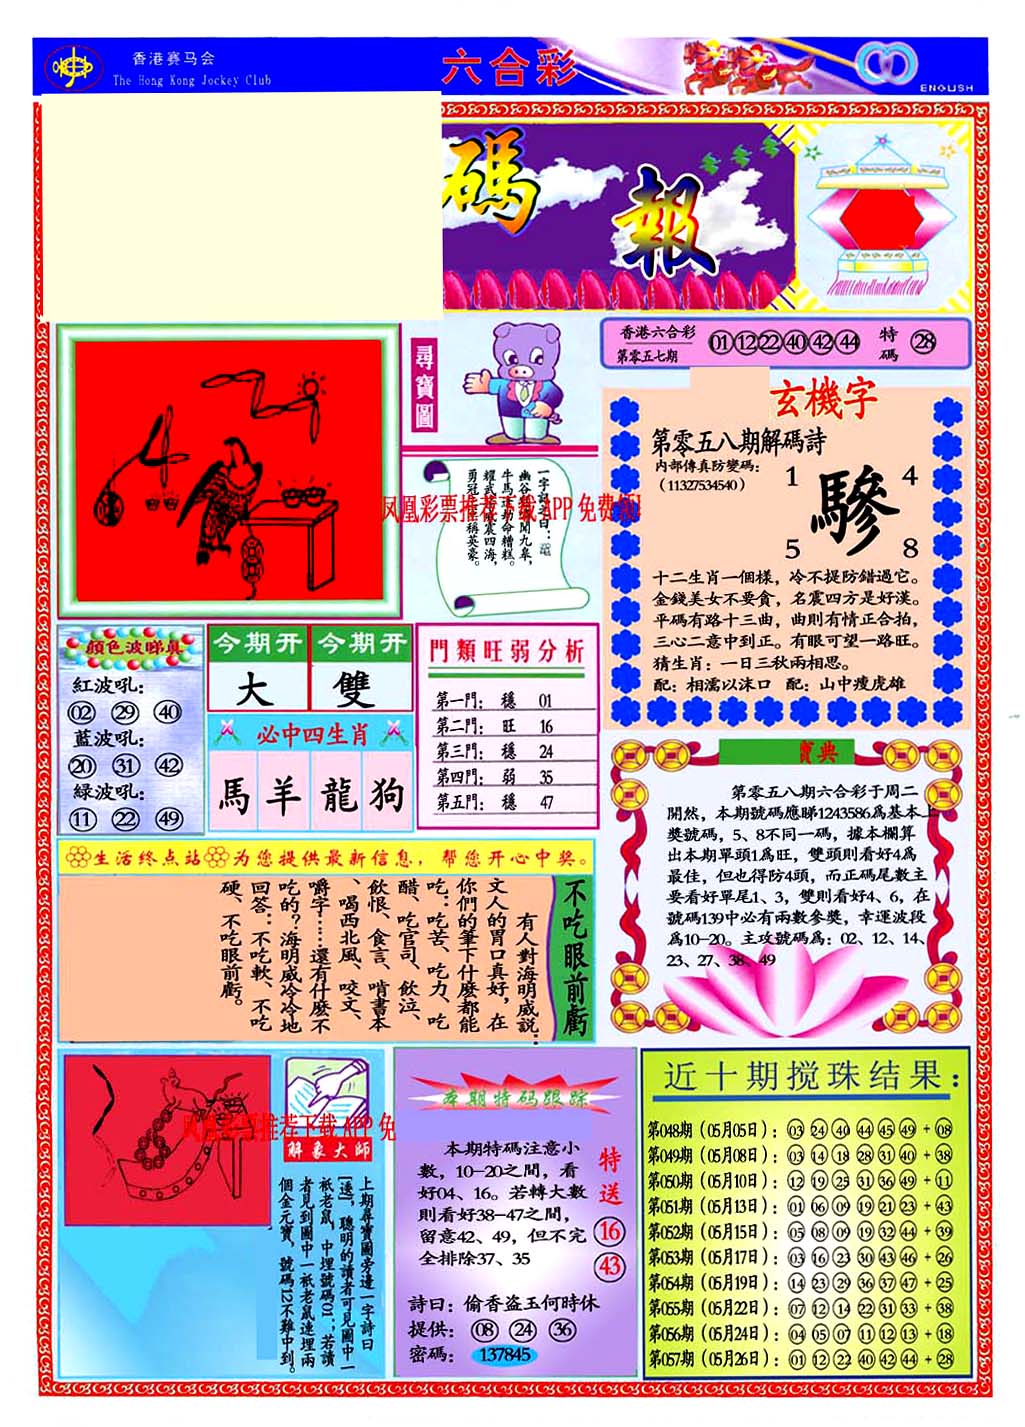 香港赛马会
The Hong Kong Jockey Club
六合彩
ENGLISH
碼報
尋寶圖
香港六合彩
第零五七期
01 12 22 40 42 44
特碼
28
玄機字
第零五八期解碼詩
内部傳真防變碼：
（11327534540）
1 4
驂
5 8
十二生肖一個樣，冷不提防錯過它。
金錢美女不要貪，名震四方是好漢。
平碼有路十三曲，曲則有情正合拍，
三心二意中到正。有眼可望一路旺。
猜生肖：一日三秋兩相思。
配：相濡以沫口 配：山中瘦虎雄
一字詩之曰：
牛馬
命糟糕。
耀武
威震四海，
勇冠
稱英豪。
凤凰彩票推荐下载 APP 免费领
顏色波睇真
紅波吼：
02 29 40
藍波吼：
20 31 42
緑波吼：
11 22 49
今期开 今期开
大 雙
必中四生肖
馬 羊 龍 狗
門類旺弱分析
第一門： 穩 01
第二門： 旺 16
第三門： 穩 24
第四門： 弱 35
第五門： 穩 47
寶典
第零五八期六合彩于周二
開然，本期號碼應睇1243586爲基本上
獎號碼，5、8不同一碼，據本欄算
出本期單頭1爲旺，雙頭則看好4爲
最佳，但也得防4頭，而正碼尾數主
要看好單尾1、3，雙則看好4、6，在
號碼139中必有兩數參獎，幸運波段
爲10-20。主攻號碼爲：02、12、14、
23、27、38、49
生活终点站 为您提供最新信息，帮您开心中奖。
不吃眼前虧
有人對海明威說：
文人的胃口真好，在
你們的筆下什麼都能
吃：吃苦、吃力、吃
醋、吃官司、飲泣、
飲恨、食言、啃書本
、喝西北風、咬文、
嚼字……還有什麼不
吃的？海明威冷冷地
回答：不吃軟、不吃
硬、不吃眼前虧。
凤凰彩票推荐下载 APP 免
解象大師
上期尋寶圖旁邊一字詩曰
[遠]，聰明的讀者可見圖中一
祇老鼠，中埋號碼01，若讀
者見到圖中一祇老鼠連埋兩
個金元寶，號碼12不難中到。
本期特码跟踪
本期特碼注意小
數，10-20之間，看
好04、16。若轉大數
則看好38-47之間，
留意42、49，但不完
全排除37、35
特送
16
43
詩曰：偷香盗玉何時休
提供： 08 24 36
密碼： 137845
近十期搅珠结果：
第048期（05月05日）：03 24 40 44 45 49 + 08
第049期（05月08日）：03 14 18 28 31 40 + 38
第050期（05月10日）：12 19 25 31 36 49 + 11
第051期（05月13日）：01 06 09 19 21 23 + 43
第052期（05月15日）：05 08 09 19 32 44 + 39
第053期（05月17日）：03 16 23 30 43 46 + 26
第054期（05月19日）：14 23 29 36 37 47 + 25
第055期（05月22日）：07 12 14 22 31 33 + 38
第056期（05月24日）：04 05 07 11 12 13 + 18
第057期（05月26日）：01 12 22 40 42 44 + 28